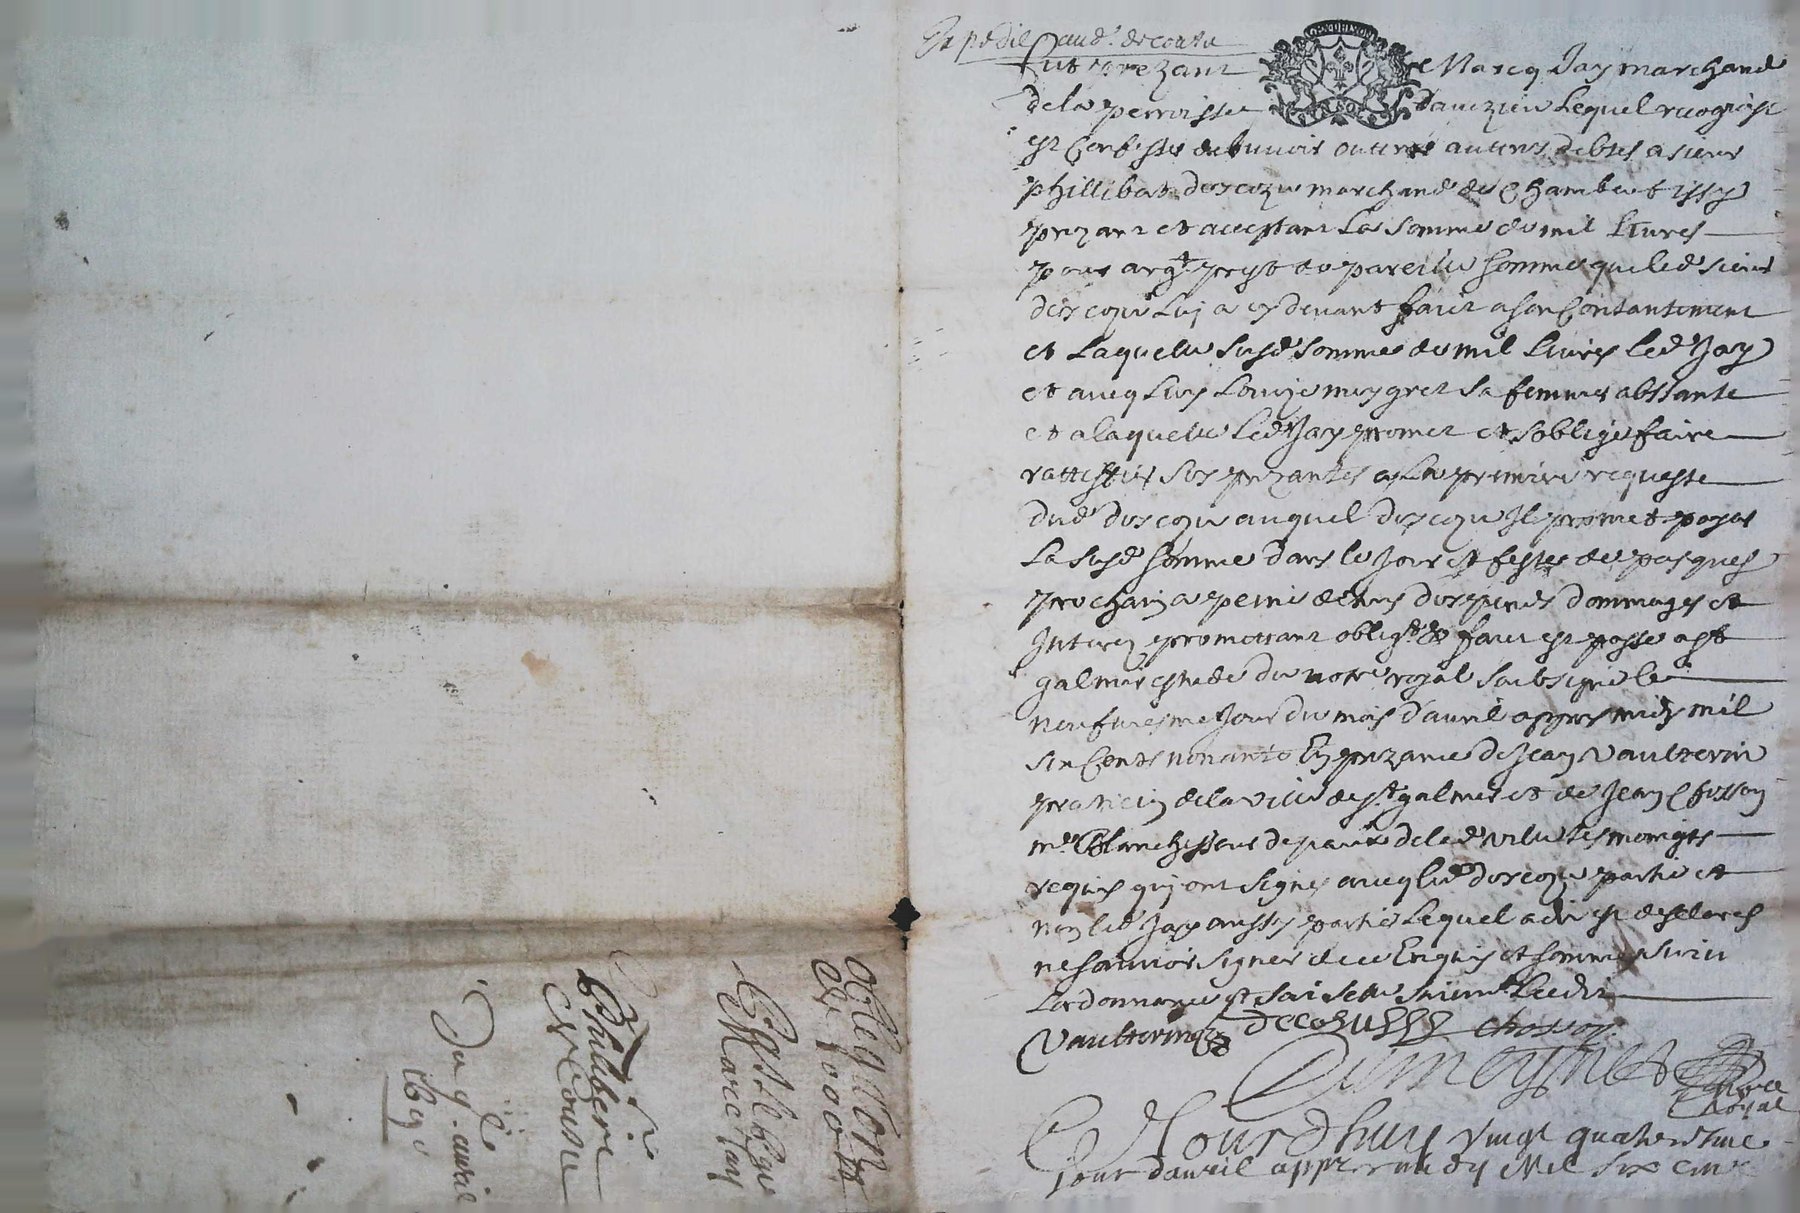 Expedié aud. descousu
fut prezant Marcq Jay marchand
dela perroisse davezieu Lequel recognoist
et Confesse debvoir outre autres debtes a sieur
phillibert descozu marchand de Chambeut issy
prezant et acceptant La somme de mil livres
pour argt prest de pareille somme que led. sieur
descozu Luy a cy devant faict a son Contantement
et Laquelle susd. somme de mil livres led. Jay
et avecq Luy Louize meygret sa femme abssante
et a laquelle Led. Jay promet et s'oblige faire
rattiffier ses prezantes a la premiere requeste
dud. descozu auquel descozu Il promet payer
La susd. somme dans le Jour et feste de pasques
prochain a peine de tous despends dommages et
Interez promettant oblig.t &c faict et passé a st
galmier estude du notre royal soubsigné le
neufviesme Jour du mois d'avril appres midy mil
six Cents nonante En prezance de Jean Vaulterin
praticien dela ville de st galmier et de Jean Chosson
me Blanchisseur de peaux de lad. ville tesmoings
requis quj ont signes avecq led. descozu partie et
non led. Jay aussy partie Lequel a dit et desclaré
ne sauvoir signer de ce Enquis et sommé suivant
Lordonnance et sai selle suivnt Ledit
Vaulterin decozu chosson
Dumeysniel
Nore
Royal
Et Jourdhuy vingt quatriesme
Jour davril appres midy Mil six cent
obligation
de 1000 ll
Contre
Marc Jay
Pour Sr
Philibert
de Cousu
Du 9e avril
1690